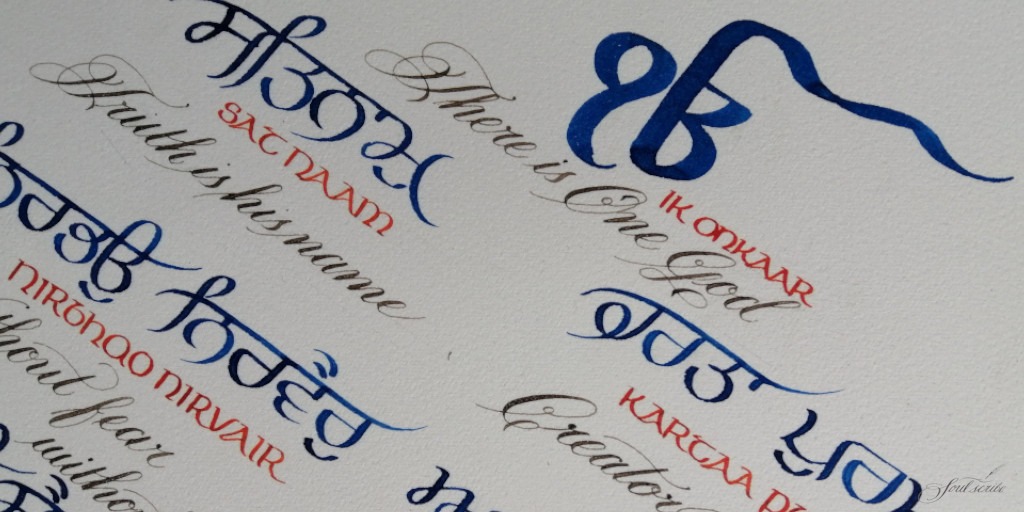 ੴ
IK ONKAAR
There is One God
ਸਤਿਨਾਮੁ
SAT NAAM
Truith is his name
ਕਰਤਾ
KARTAA
Creator
ਨਿਰਭਉ ਨਿਰਵੈਰੁ
NIRBHAO NIRVAIR
fear
Soul scribe